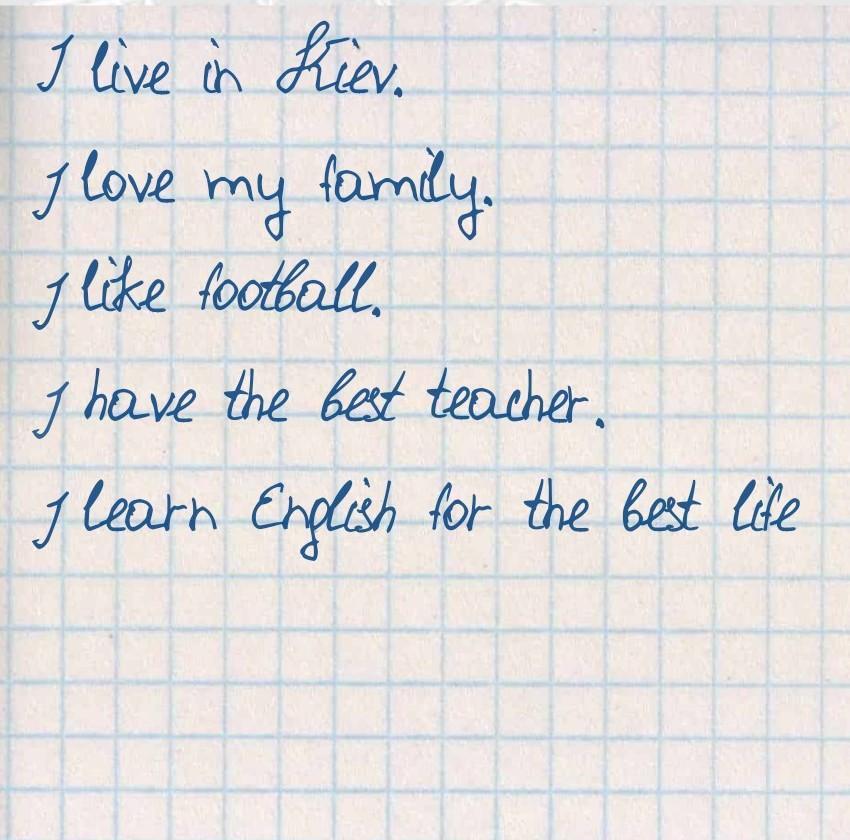 I live in Kiev.
I love my family.
I like football.
I have the best teacher.
I learn English for the best life